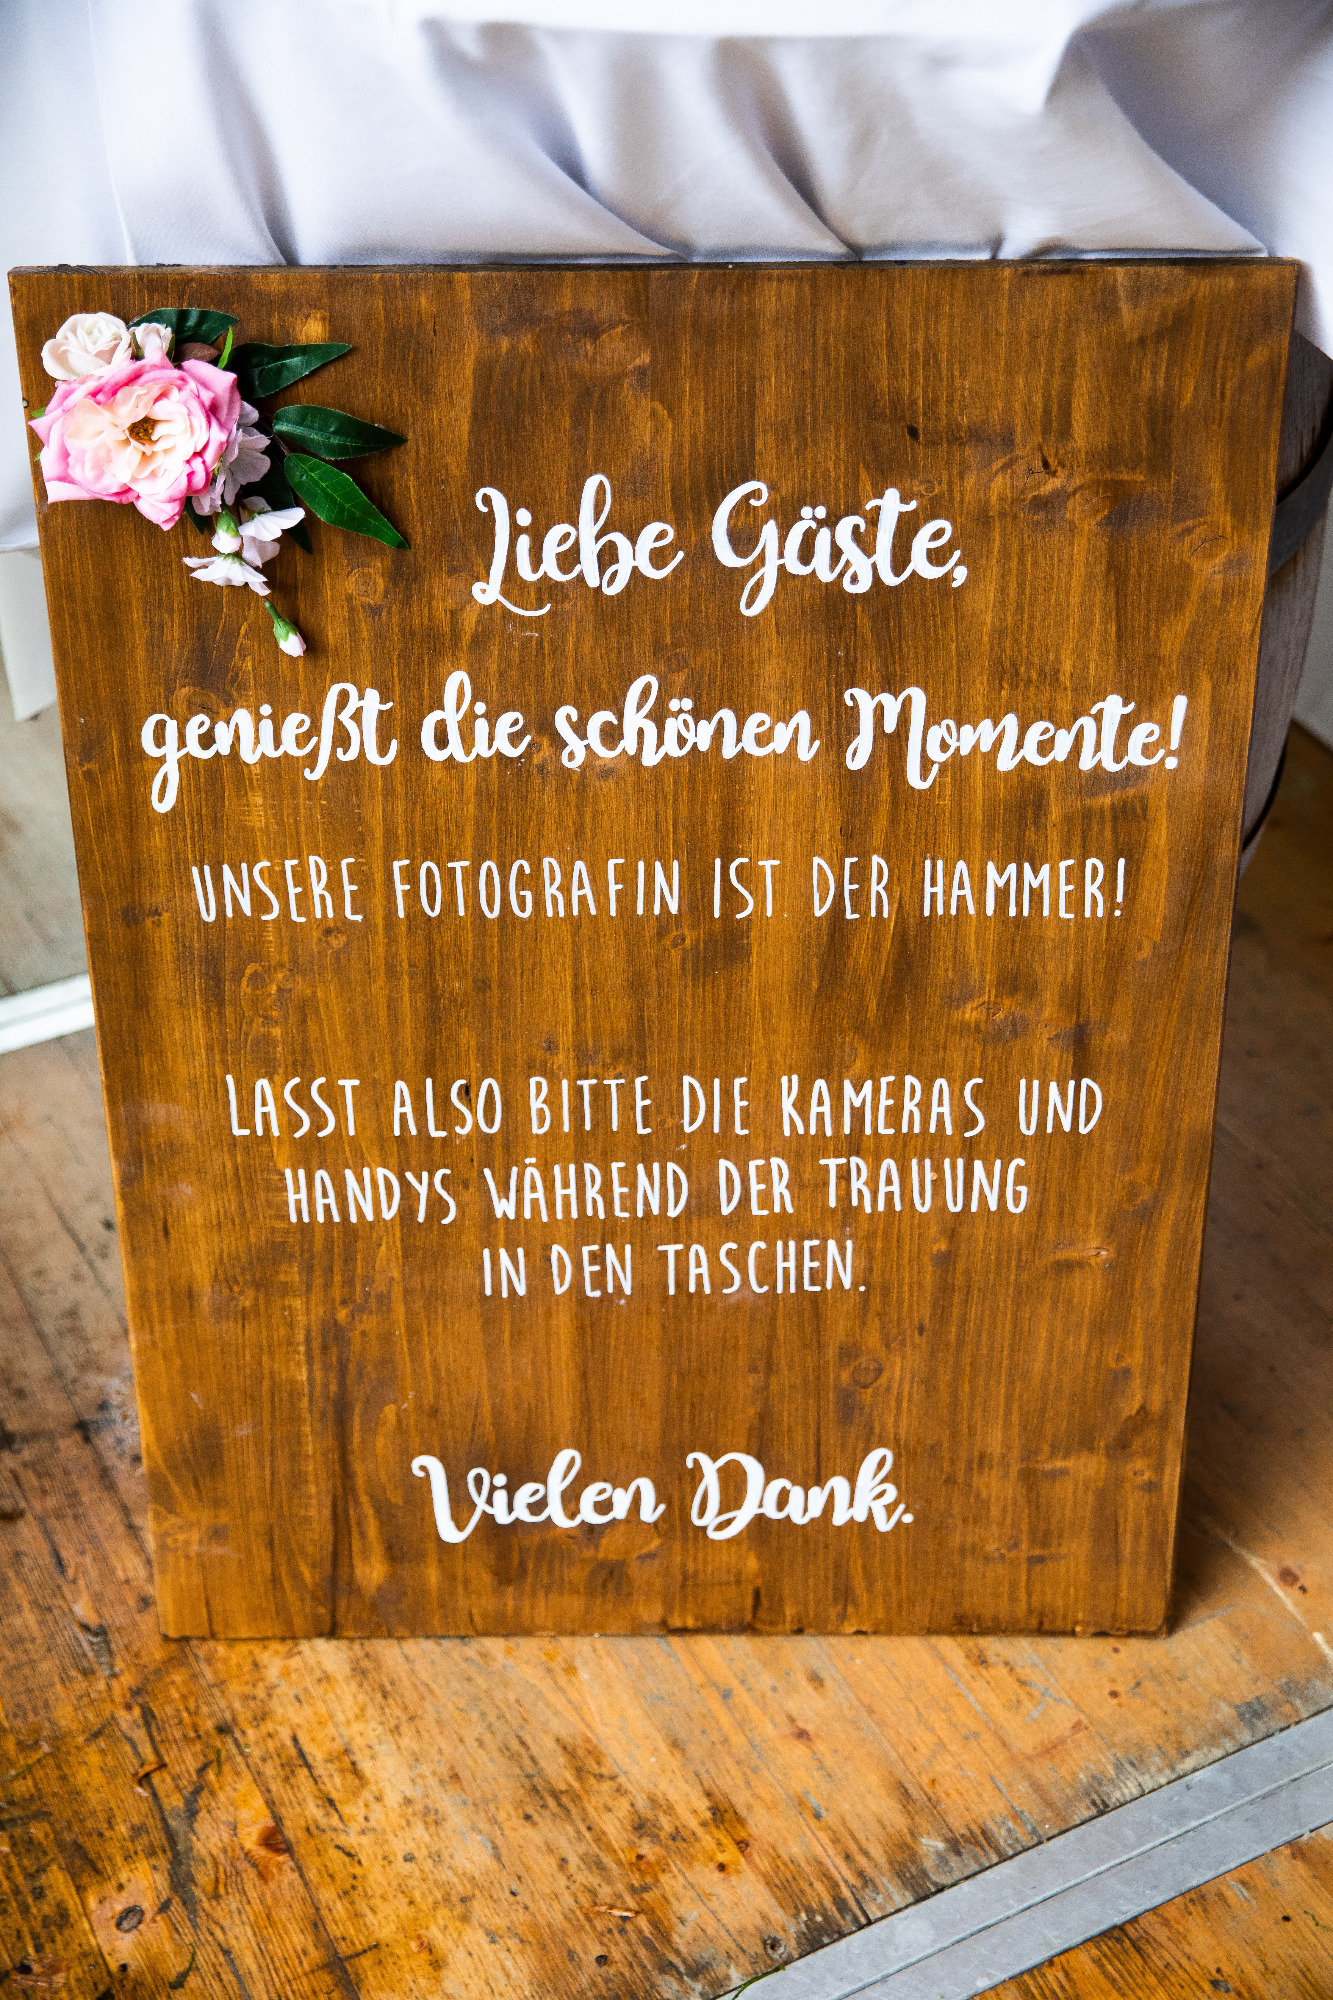 Liebe Gäste,
genießt die schönen Momente!
UNSERE FOTOGRAFIN IST DER HAMMER!
LASST ALSO BITTE DIE KAMERAS UND
HANDYS WÄHREND DER TRAUUNG
IN DEN TASCHEN.
Vielen Dank.